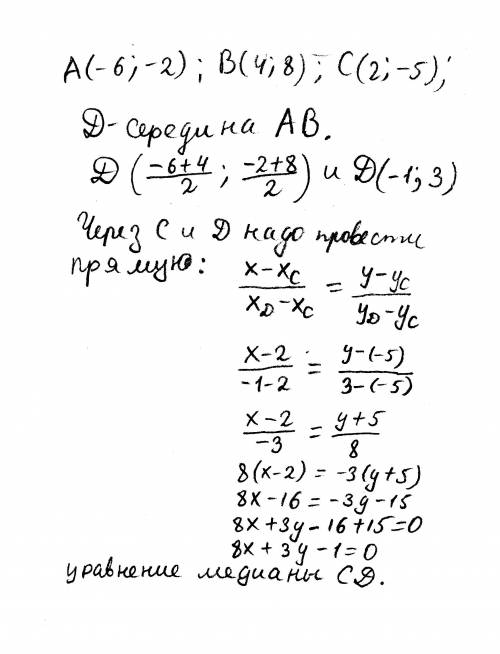 A(-6;-2); B(4;8); C(2;-5);
D-середина AB.
D(\frac{-6+4}{2}; \frac{-2+8}{2}) и D(-1;3)
Через C и D надо провести
прямую:
\frac{x-x_C}{x_D-x_C} = \frac{y-y_C}{y_D-y_C}
\frac{x-2}{-1-2} = \frac{y-(-5)}{3-(-5)}
\frac{x-2}{-3} = \frac{y+5}{8}
8(x-2) = -3(y+5)
8x-16 = -3y-15
8x+3y-16+15=0
8x+3y-1=0
уравнение медианы CD.